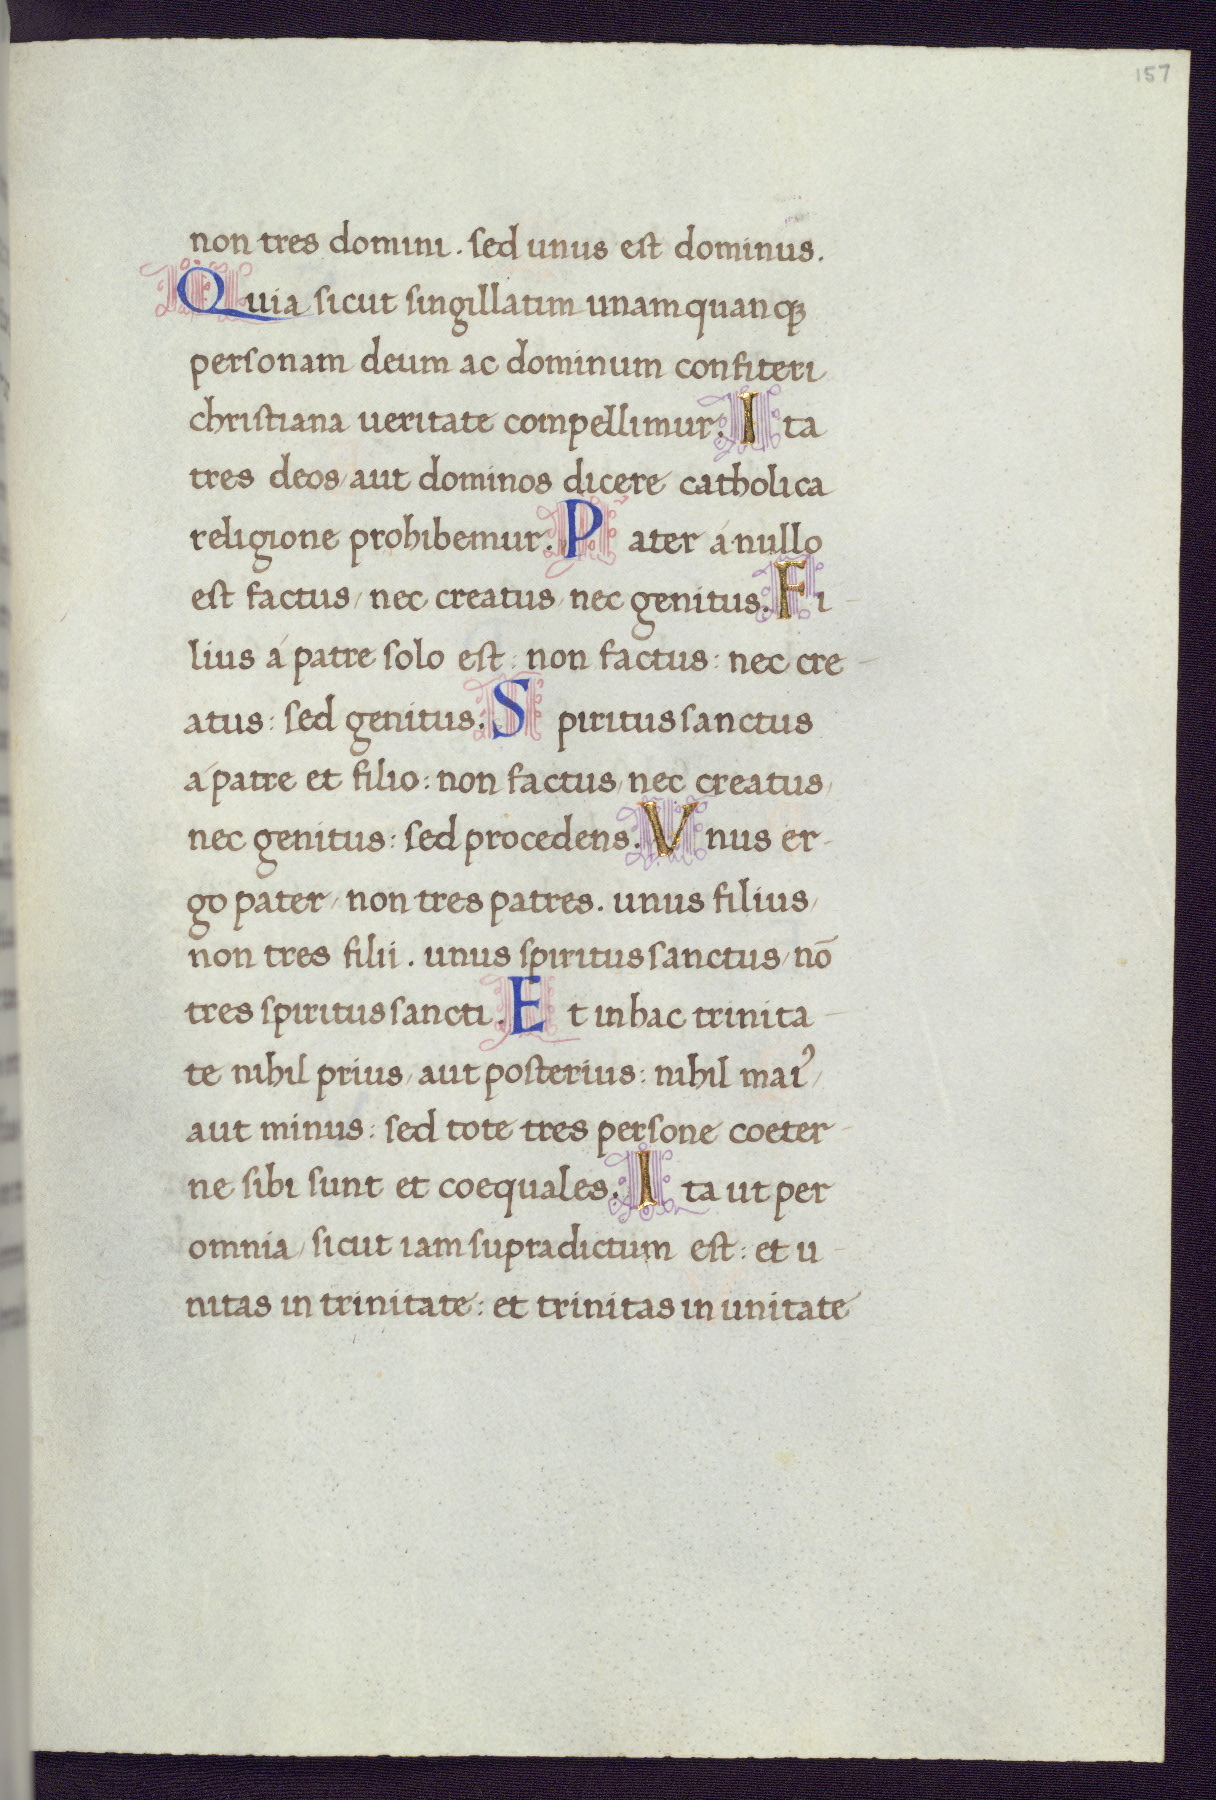 157
non tres domini. sed unus est dominus.
Quia sicut singillatim unamquanqꝫ
personam deum ac dominum confiteri
christiana ueritate compellimur. Ita
tres deos/ aut dominos dicere catholica
religione prohibemur. Pater á nullo
est factus/ nec creatus/ nec genitus. Fi-
lius á patre solo est: non factus: nec cre-
atus: sed genitus. Spiritus sanctus
á patre et filio: non factus/ nec creatus/
nec genitus: sed procedens. Vnus er-
go pater/ non tres patres. unus filius/
non tres filii. unus spiritus sanctus/ nō
tres spiritus sancti. Et in hac trinita-
te nihil prius/ aut posterius: nihil maiꝰ/
aut minus: sed tote tres persone coeter-
ne sibi sunt et coequales. Ita ut per
omnia/ sicut iam supradictum est: et u-
nitas in trinitate: et trinitas in unitate